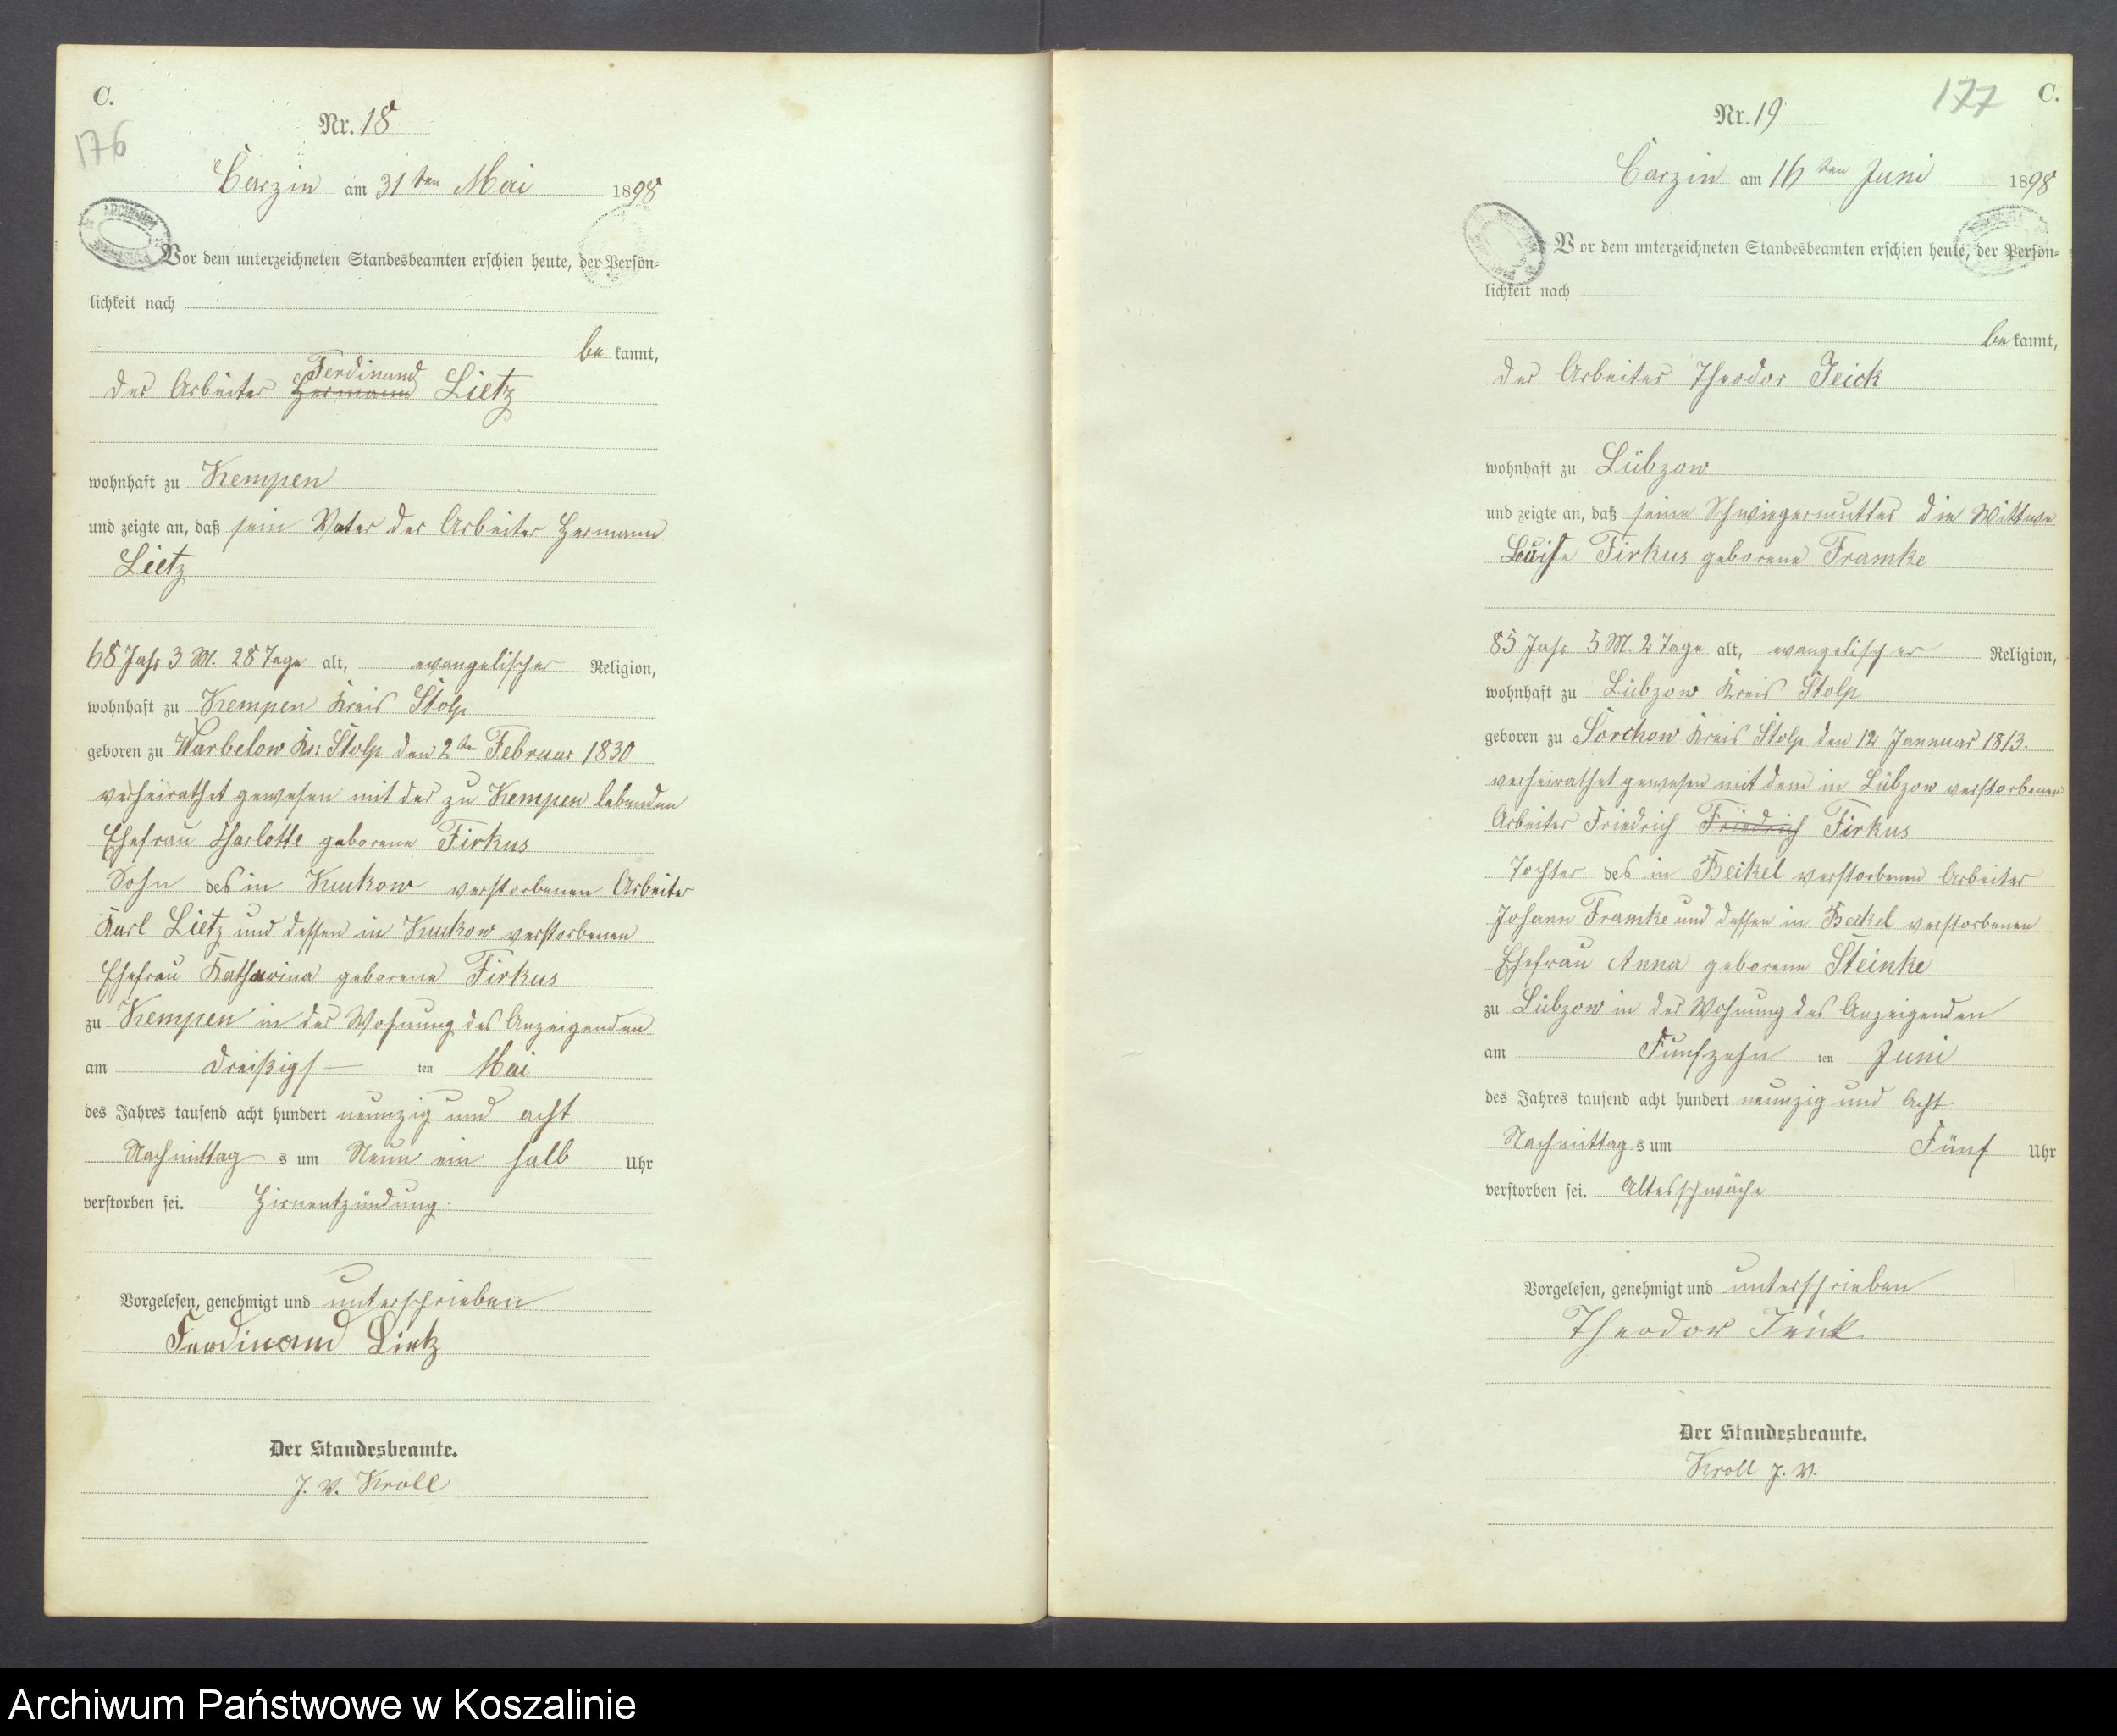 C.
176
Nr. 18
Carzin am 31ten Mai 1898
Vor dem unterzeichneten Standesbeamten erschien heute, der Persön-
lichkeit nach
be kannt,
Ferdinand
der Arbeiter Hermann Lietz
wohnhaft zu Kempen
und zeigte an, daß sein Vater der Arbeiter Hermann
Lietz
68 Jahr 3 M. 28 Tage alt, evangelischer Religion,
wohnhaft zu Kempen Kreis Stolp
geboren zu Warbelow Kr: Stolp den 2ten Februar 1830
verheirathet gewesen mit der zu Kempen lebenden
Ehefrau Charlotte geborene Firkus
Sohn des in Kukow verstorbenen Arbeiter
Karl Lietz und dessen in Kukow verstorbenen
Ehefrau Katharina geborene Firkus
zu Kempen in der Wohnung des Anzeigenden
am dreißigs ten Mai
des Jahres tausend acht hundert neunzig und acht
Nachmittag s um Neun ein halb Uhr
verstorben sei. Hirnentzündung.
Vorgelesen, genehmigt und unterschrieben
Ferdinand Lietz
Der Standesbeamte.
J. V. Kroll
177
C.
Nr. 19
Carzin am 16ten Juni 1898
Vor dem unterzeichneten Standesbeamten erschien heute, der Persön-
lichkeit nach
be kannt,
der Arbeiter Theodor Jeick
wohnhaft zu Lübzow
und zeigte an, daß seine Schwiegermutter die Wittwe
Louise Firkus geborene Framke
85 Jahr 5 M. 2 Tage alt, evangelischer Religion,
wohnhaft zu Lübzow Kreis Stolp
geboren zu Sorchow Kreis Stolp den 12 Januar 1813.
verheirathet gewesen mit dem in Lübzow verstorbenen
Arbeiter Friedrich Friedrich Firkus
Tochter des in Beikel verstorbenen Arbeiter
Johann Framke und dessen in Beikel verstorbenen
Ehefrau Anna geborene Steinke
zu Lübzow in der Wohnung des Anzeigenden
am Funfzehn ten Juni
des Jahres tausend acht hundert neunzig und Acht
Nachmittag s um Fünf Uhr
verstorben sei. Altersschwäche
Vorgelesen, genehmigt und unterschrieben
Theodor Jeick
Der Standesbeamte.
Kroll J. V.
Archiwum Państwowe w Koszalinie